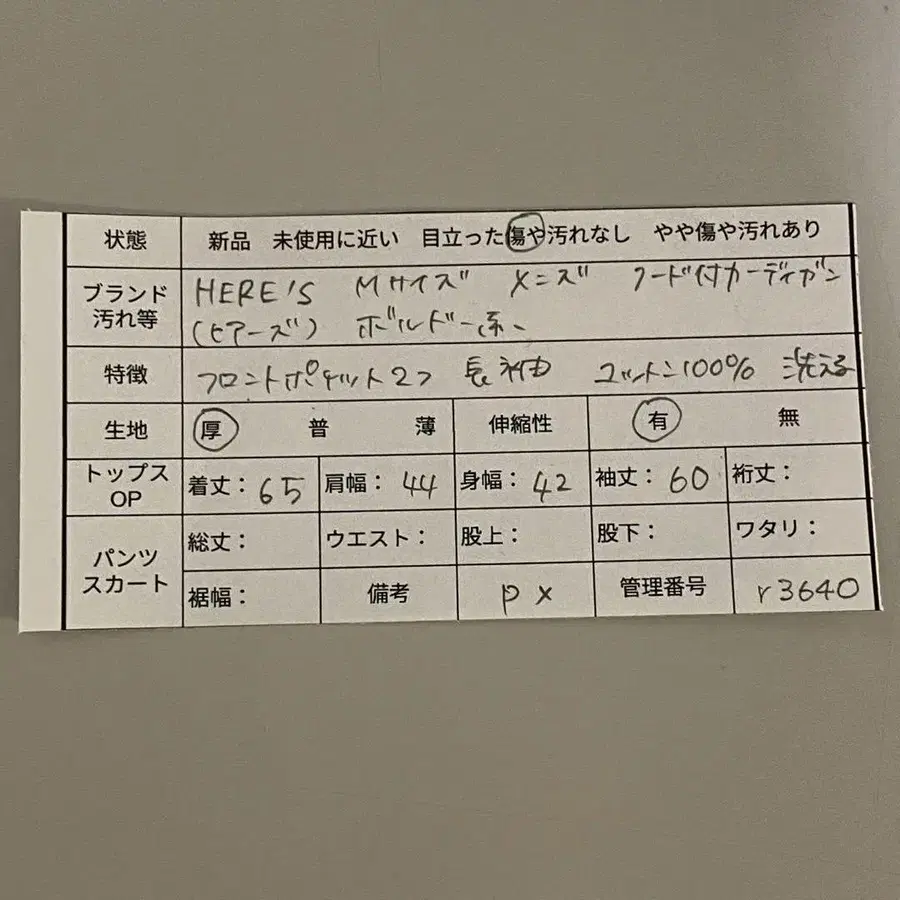 状態 新品 未使用に近い 目立った傷や汚れなし やや傷や汚れあり
ブランド 汚れ等 HERE'S Mサイズ メンズ フード付カーディガン
(ヒアーズ) ボルドー系、
特徴 フロントポケット2つ 長袖 コットン100% 洗える
生地 厚 普 薄 伸縮性 有 無
トップス OP 着丈: 65 肩幅: 44 身幅: 42 袖丈: 60 裄丈:
パンツ スカート 総丈: ウエスト: 股上: 股下: ワタリ:
裾幅: 備考 px 管理番号 r3640